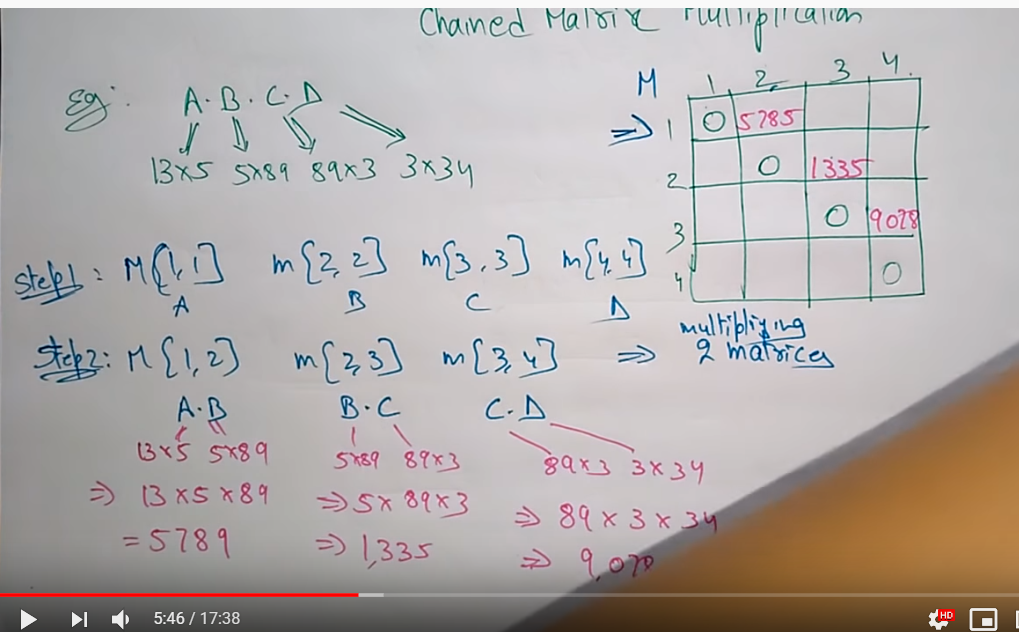 Chained Matrix Multiplication
Eg: A. B. C. D
13x5 5x89 89x3 3x34
M 1 2 3 4.
⇒ 1 0 5785
2 0 1335
3 0 9078
4 0
Step1: M[1,1] m[2,2] m[3,3] m[4,4]
A B C D
Step2: M[1,2] m[2,3] m[3,4] ⇒ multipliying
2 matrices
A.B B.C C.D
13x5 5x89 5x89 89x3 89x3 3x34
⇒ 13x5x89 ⇒ 5x89x3 ⇒ 89x3x34
= 5789 ⇒ 1,335 ⇒ 9,078
5:46 / 17:38
HD